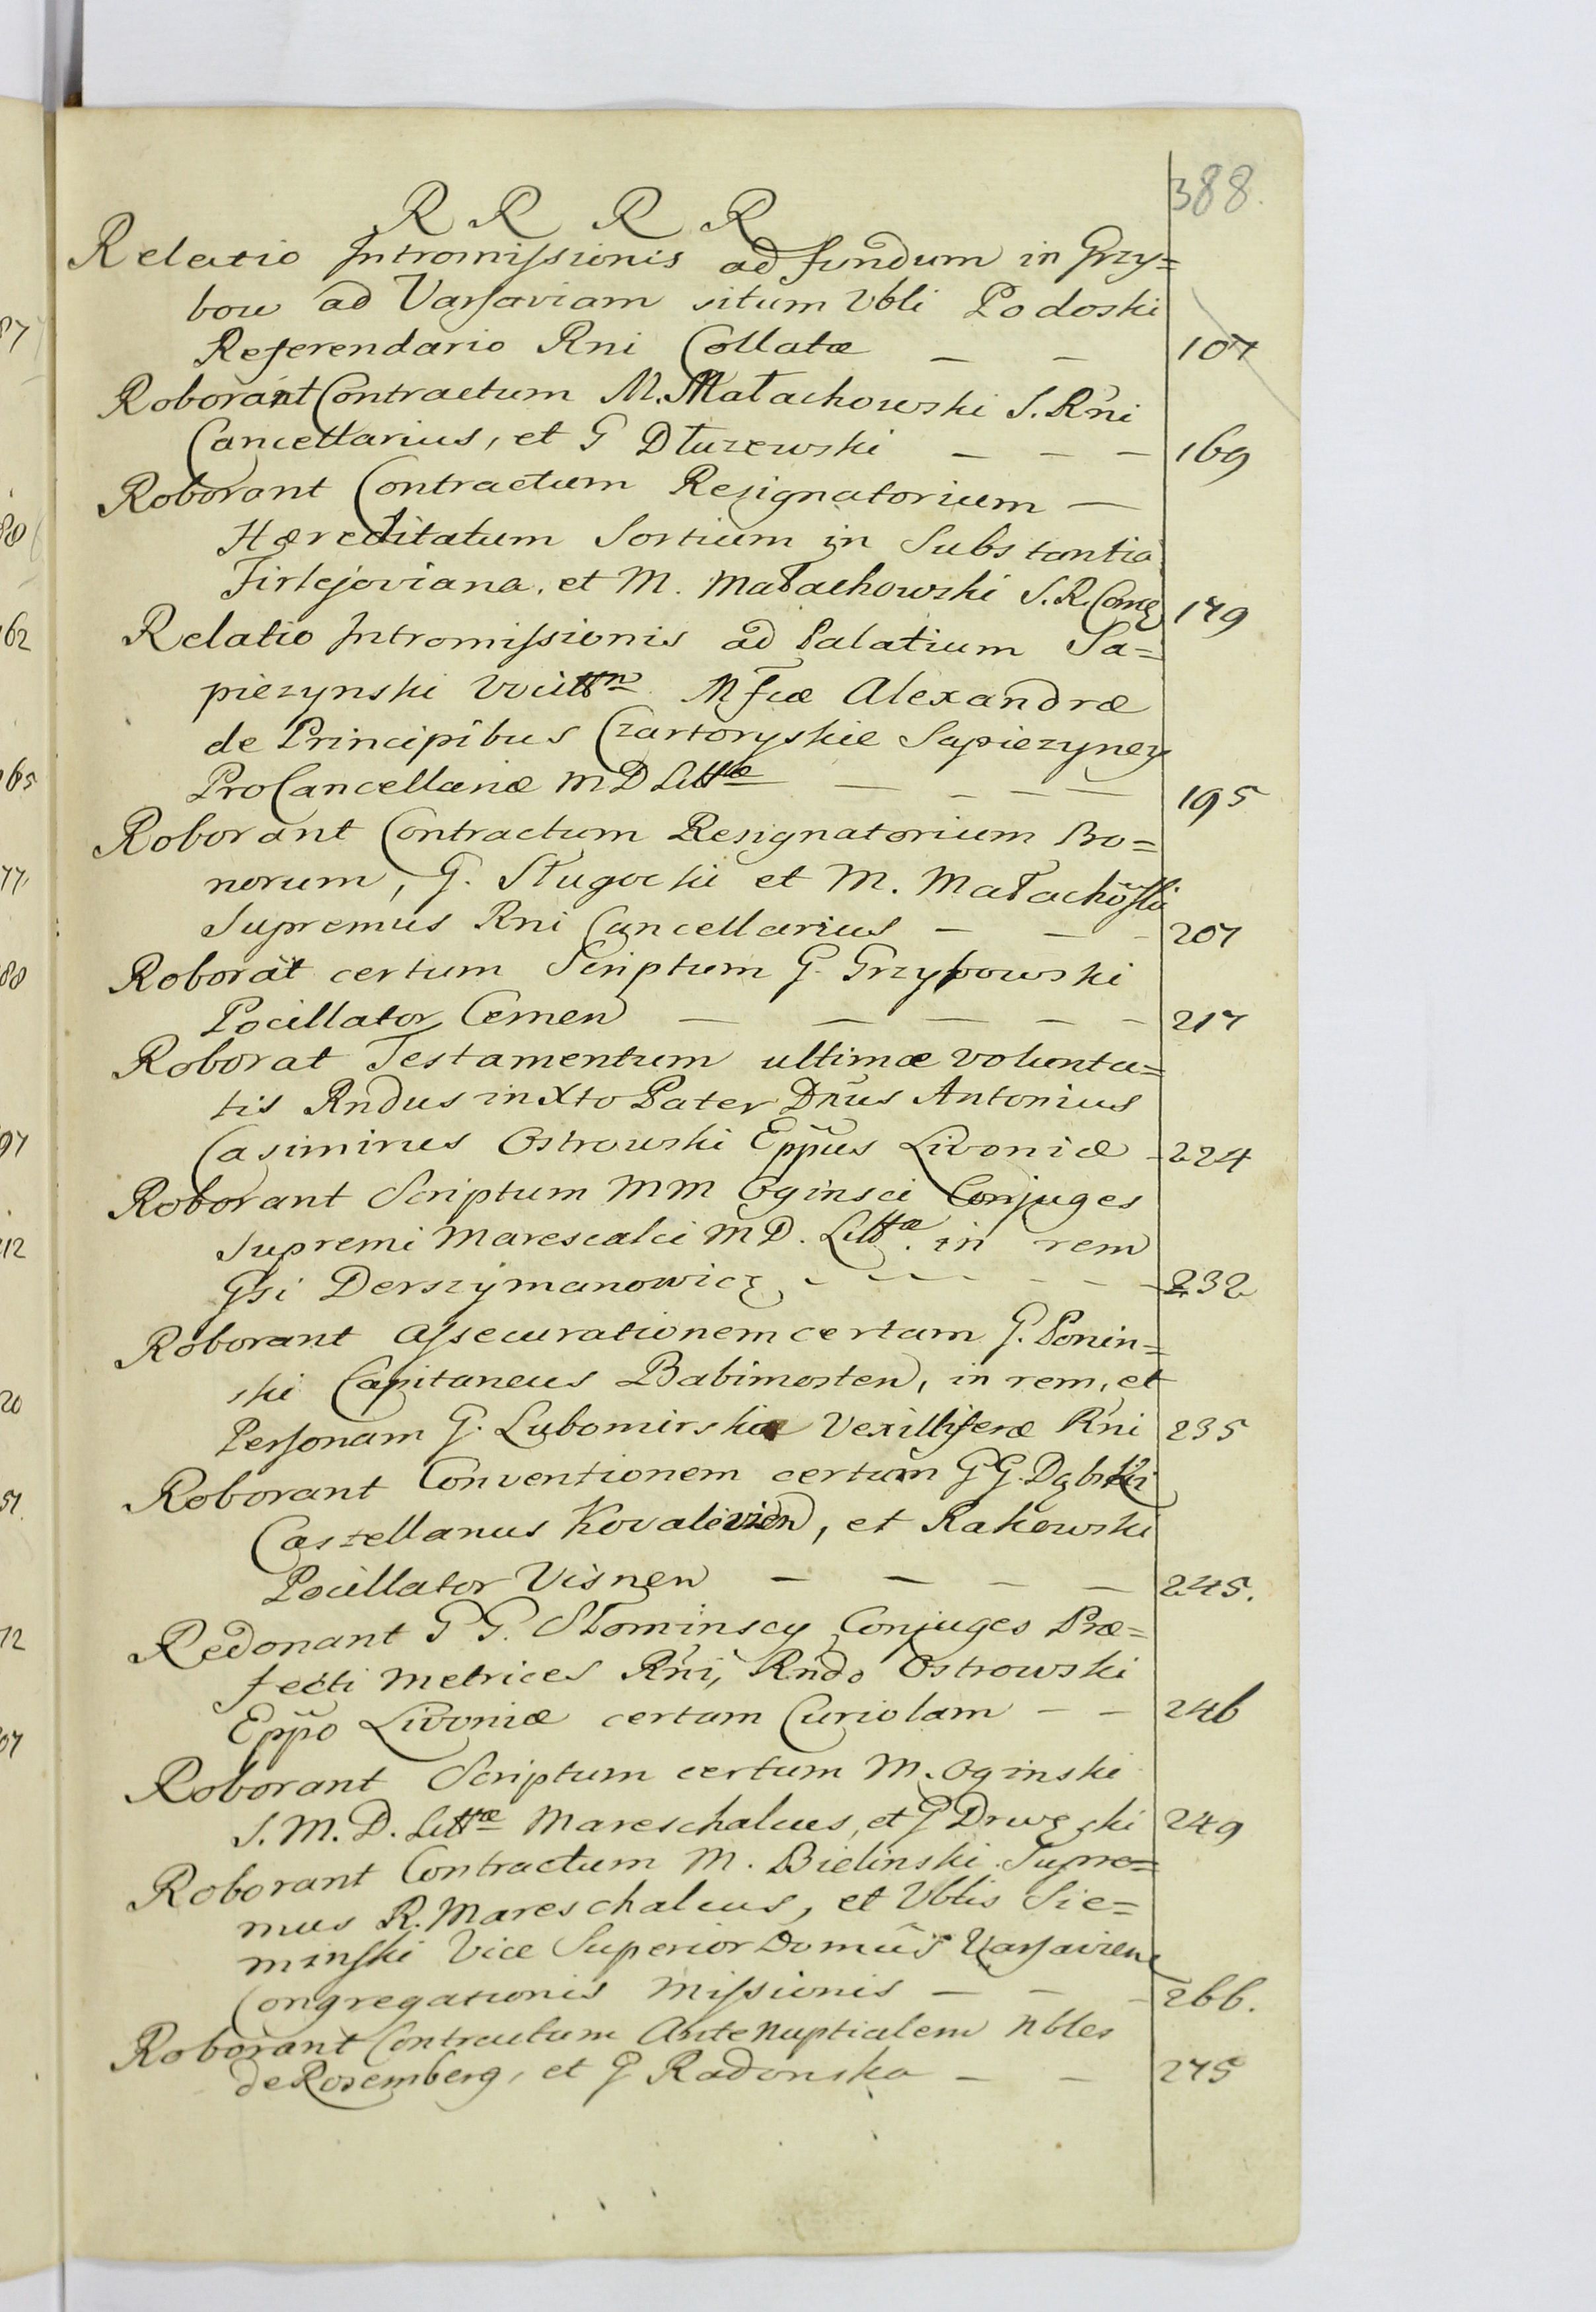 388.
R R R R
Relatio Intromissionis ad fundum in Grzy=
bow ad Varsaviam situm Vbli Podoski
Referendario Rni Collatæ — — 107
Roborant Contractum M. Małachowski S. Rni
Cancellarius, et G Dłuzewski — — — 169
Roborant Contractum Resignatorium —
Hæreditatum Sortium in Substantia
Firlejoviana, et M. Małachowski S. R. Canc 179
Relatio Intromissionis ad Palatium Sa=
piezynski Mfcæ Alexandræ
de Principibus Czartoryskie Sapiezyney
ProCancellariæ M D Littæ — — — — 195
Roborant Contractum Resignatorium Bo=
norum, G. Sługocki et M. Małachõski
Supremus Rni Cancellarius — — - 207
Roborat certum Scriptum G. Grzybowski
Pocillator Cernen — — — — - 217
Roborat Testamentum ultimæ volunta=
tis Rndus in Xto Pater Dnus Antonius
Casimirus Ostrowski Eppus Livoniæ - 224
Roborant Scriptum MM Oginsci Conjuges
Supremi Marescalci M D. Littæ. in rem
Gsi Derszymanowicz - - - - - - 232
Roborant assecurationem certam G. Ponin=
ski Capitaneus Babimosten, in rem, et
Personam G. Lubomirskiæ Vexilliferæ Rni 235
Roborant Conventionem certam GG. Dąbski
Castellanus Kovalevien, et Rakowski
Pocillator Visnen — — — — 245.
Redonant G G. Słominscy Conjuges Præ=
fecti Metrices Rni, Rndo Ostrowski
Eppo Livoniæ certam Curiolam — — 246
Roborant Scriptum certum M. Oginski
S. M. D. Littæ Mareschalcus, et G Drwęski 249
Roborant Contractum M. Bielinski Supre=
mus R. Mareschalcus, et Vblis Sie=
minski Vice Superior Domûs Varsavien
Congregationis Missionis — — - 266.
Roborant Contractum AnteNuptialem Nbles
de Rosemberg, et G Radonska — — 275
87
80
62
65
77
88
97
12
20
51
72
07